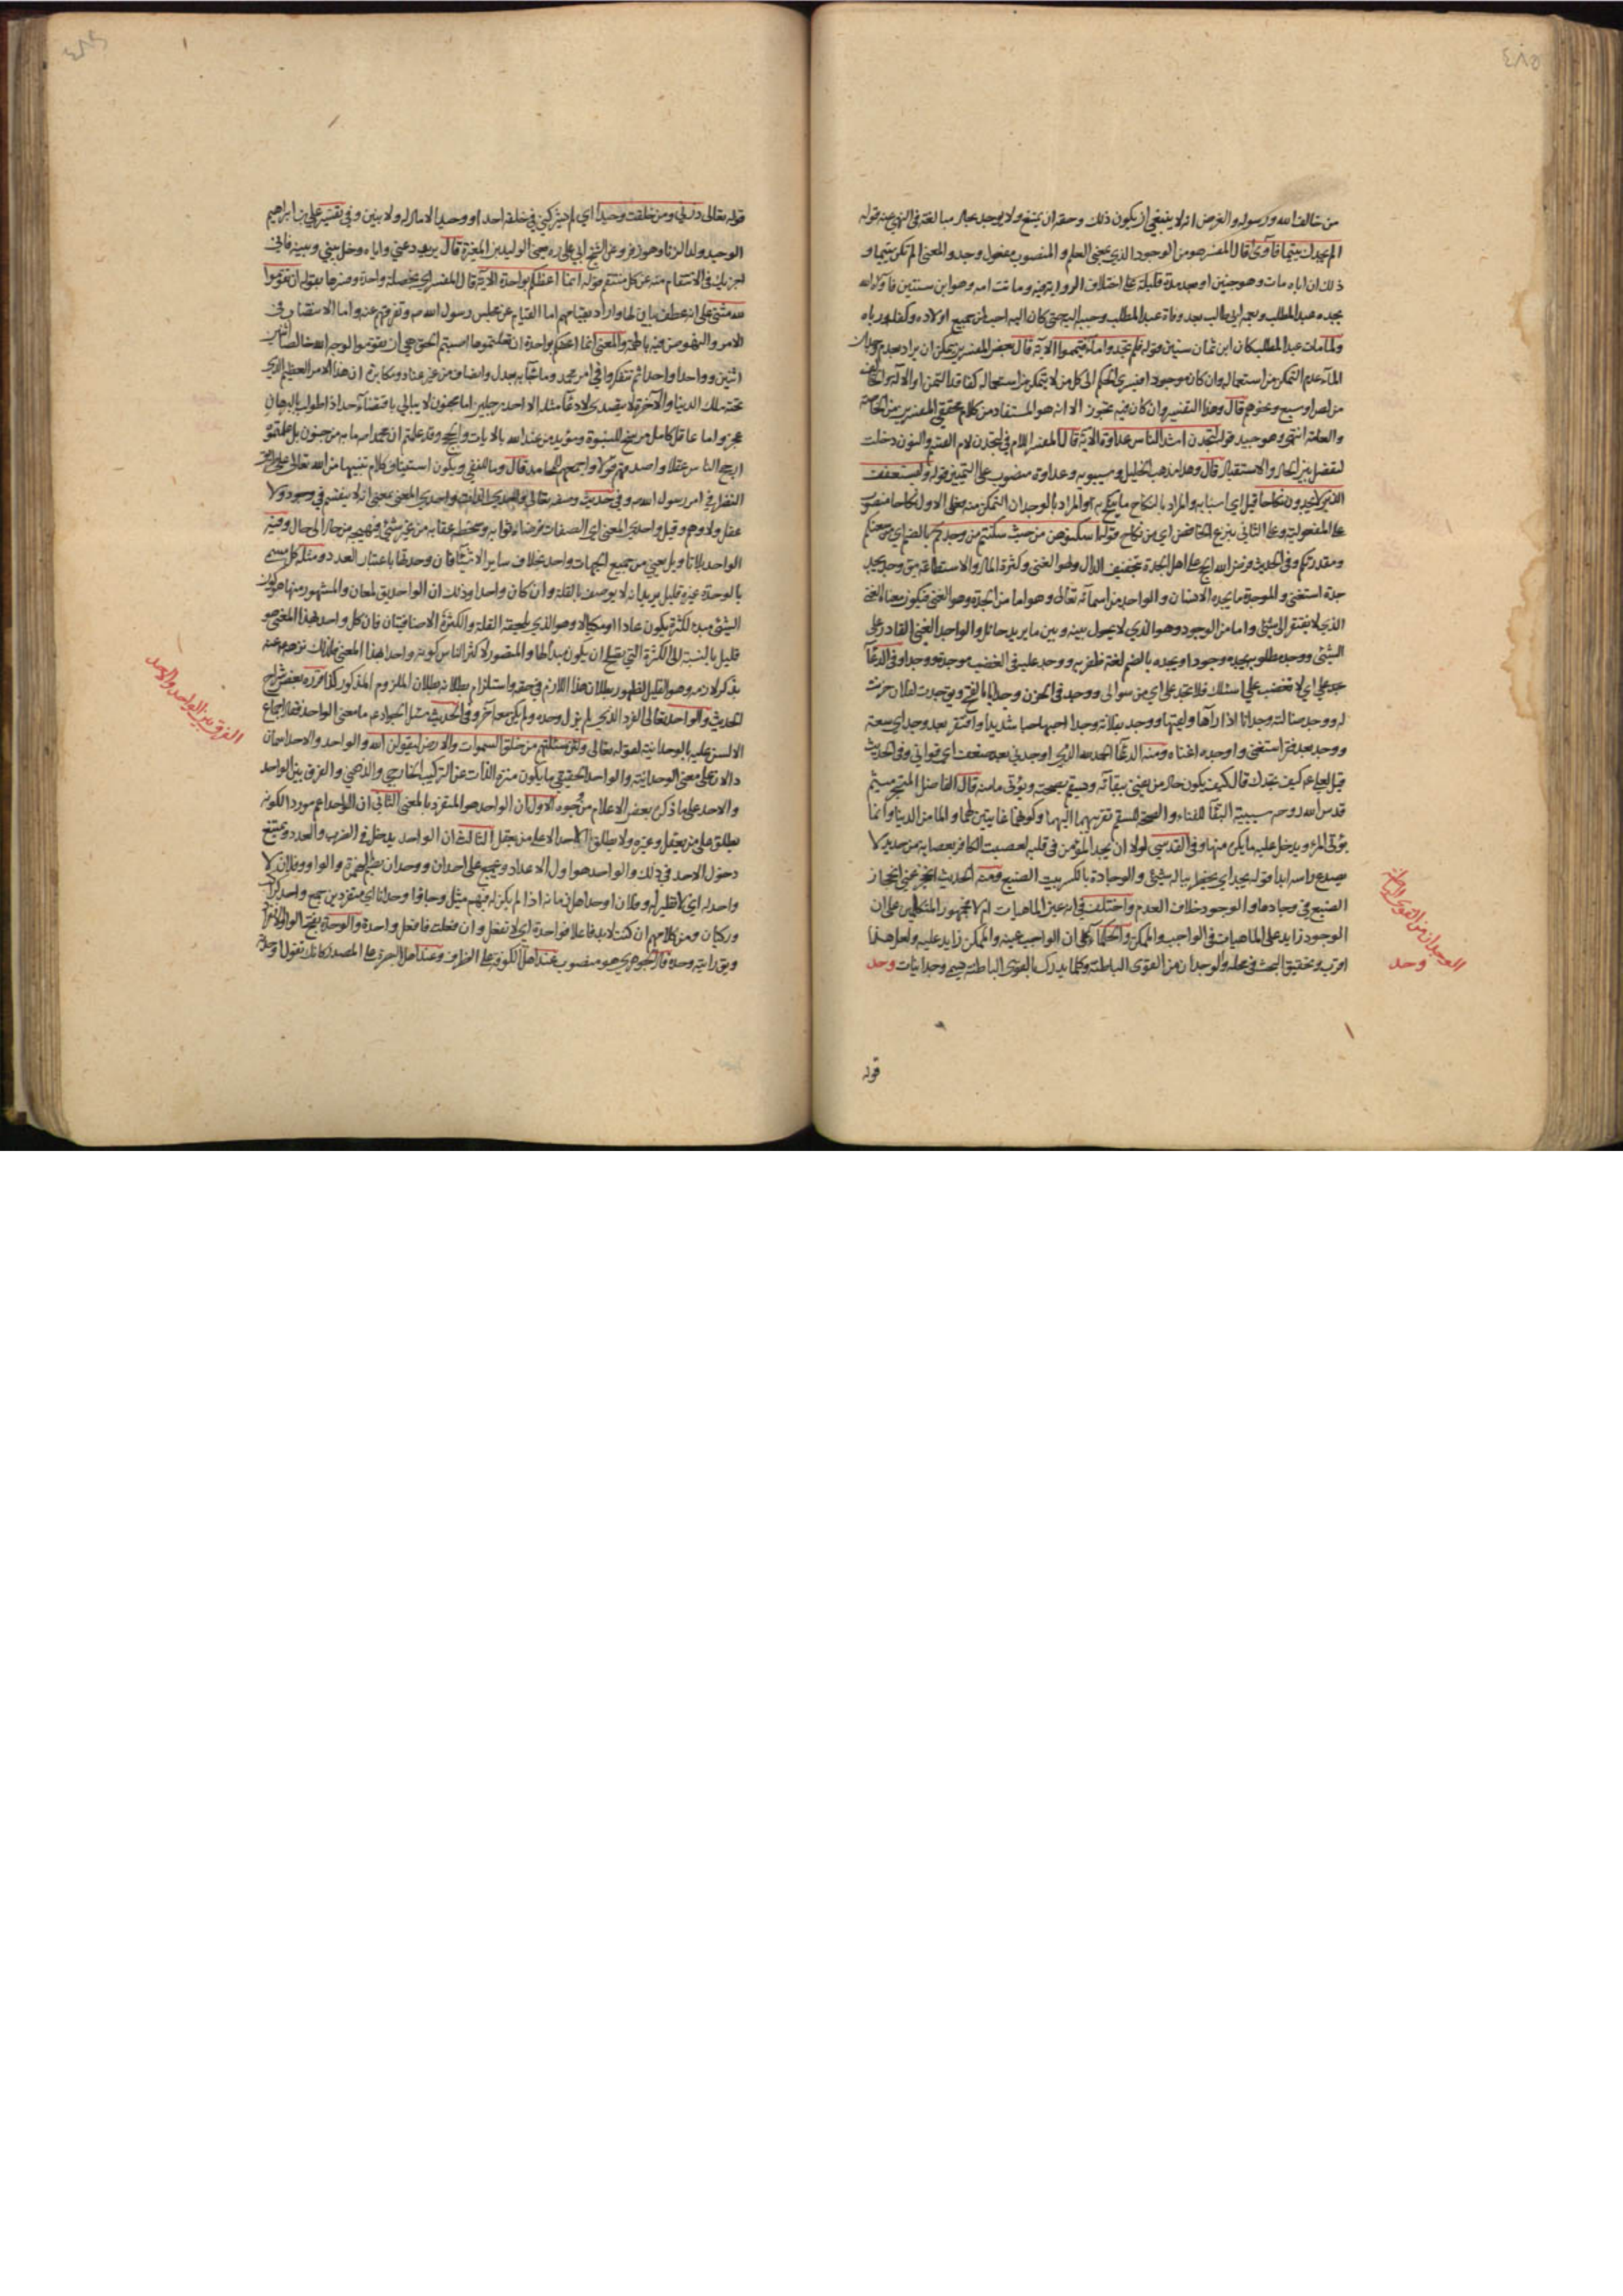 من خالف الله ورسوله والغرض انه لا ينبغي ان يكون ذلك وحقه ان يمتنع ولا يوجد بحال مبالغة في النهي عنه قوله
الم يجدك يتيما فآوى قال المفسر هو من الوجود الذي بمعنى العلم والمنصوب مفعولا وجد والمعنى الم تكن يتيما و
ذلك ان اباه مات وهو جنين او بعد مدة قليلة على اختلاف الرواية فيه وماتت امه وهو ابن سنتين فآواه الله
بجده عبد المطلب وبعمه ابي طالب بعد وفاة عبد المطلب وحببه اليه حتى كان اليه احب من جميع اولاده وكفله ورباه
ولما مات عبد المطلب كان ابن ثمان سنين قوله فلم تجدوا ماء فتيمموا الآية قال بعض المفسرين يمكن ان يراد بعدم وجدان
الماء عدم التمكن من استعماله وان كان موجودا فيسري الحكم الى كل من لا يتمكن من استعماله كفاقد الثمن او الآلة والخائف
من لص او سبع ونحوهم قال وهذا التفسير وان كان فيه تجوز الا انه هو المستفاد من كلام محققي المفسرين من الخاصة
والعامة انتهى وهو جيد قوله لتجدن اشد الناس عداوة الآية قال المفسر اللام في لتجدن لام القسم والنون دخلت
لتفصل بين الحال والاستقبال قال وهذا مذهب الخليل وسيبويه وعداوة منصوب على التمييز قوله وليستعفف
الذين لا يجدون نكاحا قيل اي اسبابه والمراد بالنكاح ما ينكح به او المراد بالوجدان التمكن منه فعلى الاول نكاحا منصوب
على المفعولية وعلى الثاني بنزع الخافض اي من نكاح قوله اسكنوهن من حيث سكنتم من وجدكم بالضم اي من سعتكم
ومقدرتكم وفي الحديث فرض الله الحج على اهل الجدة بتخفيف الدال وهو الغنى وكثرة المال والاستطاعة يق وجد يجد
جدة استغنى والموجدة ما يجده الانسان والواجد من اسمائه تعالى وهو اما من الجدة وهو الغنى فيكون معناه الغني
الذي لا يفتقر الى شئ واما من الوجود وهو الذي لا يحول بينه وبين ما يريد حائل والواجد الغني القادر على
الشئ ووجد مطلوبه يجده وجودا ويجده بالضم لغة ظفر به ووجد عليه في الغضب موجدة ووجدا وفي الدعاء
تجد علي اي لا تغضب علي اسئلك فلا تجد علي اي من سوالي ووجد في الحزن وجدا بالفتح ويق توجدت لفلان حزنت
له ووجد ضالته وجدانا اذا رآها ولقيها ووجد بفلانة وجدا احبها حبا شديدا وافتقر بعد وجد اي سعة
ووجد بعد فقر استغنى واوجده اغناه ومنه الدعاء الحمد لله الذي اوجدني بعد ضعف اي قواني وفي الحديث
قيل لعلي ع كيف نجدك قال كيف يكون حال من يفنى ببقائه ويسقم بصحته ويؤتى مامنه قال الفاضل المتبحر ميثم
قدس الله روحه سببية البقاء للفناء والصحة للسقم تقربهما اليهما وكونهما غايتين لهما والمامن الدنيا وانما
يؤتى المرء ويدخل عليه ما يكره منها وفي القدسي لولا ان يجد المؤمن في قلبه لعصبت الكافر بعصابة من حديد لا
يصدع راسه ابدا قوله يجد اي يخطر بباله شئ والوجادة بالكسر بيت الضبع ومنه الحديث
الضبع في وجادها والوجود خلاف العدم واختلف في انه عين الماهيات ام لا فجمهور المتكلمين على ان
الوجود زايد على الماهيات في الواجب والممكن والحكماء على ان الواجب عينه والممكن زايد عليه ولعل هذا
اقرب وتحقيق البحث في محله والوجدان من القوى الباطنة وكلما يدرك بالقوى الباطنة يسمى وجدانيات وحد
الوجدان من القوى الباطنة
وحد
قوله
قوله تعالى ذرني ومن خلقت وحيدا اي لم يشركني في خلقه احد او وحيدا لا مال له ولا بنين وفي تفسير علي بن ابراهيم
الوحيد ولد الزنا وهو زفر وعن الشيخ ابي علي ره يعني الوليد بن المغيرة قال يريد دعني واياه وخل بيني وبينه فاني
اجزيك في الانتقام منه عن كل منتقم قوله انما اعظكم بواحدة الآية قال المفسر اي بخصلة واحدة وفسرها بقوله ان تقوموا
لله مثنى على انه عطف بيان لها واراد بقيامهم اما القيام عن مجلس رسول الله ص وتفرقهم عنه واما الانتصاب في
الامر والنهوض فيه بالهمة والمعنى انما اعظكم بواحدة ان فعلتموها اصبتم الحق هي ان تقوموا لوجه الله خالصا اثنين
اثنين وواحدا واحدا ثم تتفكروا في امر محمد وما جاء به بعدل وانصاف من غير عناد ومكابرة ان هذا الامر العظيم الذي
تحته ملك الدنيا والآخرة لا يتصدى لادعاء مثله الا احد رجلين اما مجنون لا يبالي بافتضاحه اذا طولب بالبرهان
عجز واما عاقل كامل مرشح للنبوة ومؤيد من عند الله بالآيات والحجج وقد علمتم ان محمدا ص ما به من جنون بل علمتموه
ارجح الناس عقلا واصدقهم قولا واجمعهم للمحامد قال وما للنفي ويكون استيناف كلام تنبيها من الله تعالى على طريق
النظر في امر رسول الله ص وفي حديث وصفه تعالى واحدي الذات واحدي المعنى بمعنى انه لا ينقسم في وجود ولا
عقل ولا وهم وقيل واحدي المعنى اي الصفات فرضاه ثوابه وسخطه عقابه من غير شئ فيهيجه من حال الى حال وفيه
الواحد بلا تاويل يعني من جميع الجهات واحد بخلاف ساير الاشياء فان وحدتها باعتبار العدد ومثله كل مسمى
بالوحدة غيره قليل يريد انه لا يوصف بالقلة وان كان واحدا وذلك ان الواحد يق لمعان والمشهور منها هو كون
الشئ مبدء لكثرة يكون عادا او مكيالا وهو الذي تلحقه القلة والكثرة الاضافيتان فان كل واحد بهذا المعنى هو
قليل بالنسبة الى الكثرة التي يصلح ان يكون مبدأ لها والمتصور لاكثر الناس كونه واحدا بهذا المعنى فلذلك نزهه عنه
بذكر لازمه وهو القليل لظهور بطلان هذا اللازم في حقه واستلزام بطلانه بطلان الملزوم المذكور كذا قرره بعض شراح
الحديث والواحد تعالى الفرد الذي لم يزل وحده ولم يكن معه آخر وفي الحديث سئل الجواد ع ما معنى الواحد فقال اجماع
الالسن عليه بالوحدانية لقوله تعالى ولئن سئلتهم من خلق السموات والارض ليقولن الله والواحد والاحد اسمان
دالان على معنى الوحدانية والواحد الحقيقي ما يكون منزه الذات عن التركيب الخارجي والذهني والفرق بين الواحد
والاحد على ما ذكره بعض الاعلام من وجوه الاول ان الواحد هو المتفرد بالمعنى الثاني ان الواحد اعم موردا لكونه
يطلق على من يعقل وغيره ولا يطلق الاحد الا على من يعقل الثالث ان الواحد يدخل في الضرب والعدد ويمتنع
دخول الاحد في ذلك والواحد هو اول الاعداد ويجمع على احدان ووحدان بضم الهمزة والواو وفلان لا
واحد له اي لا نظير له وفلان اوحد اهل زمانه اذا لم يكن له فيهم مثل وجاؤا وحدانا اي متفردين جمع واحد كراكب
وركبان ومن كلامهم ان كنت لابد فاعلا فواحدة اي لا تفعل وان فعلت فافعل واحدة والوحدة بفتح الواو الانفراد
ويق رايته وحده قال الجوهري هو منصوب عند اهل الكوفة على الظرف وعند اهل البصرة على المصدر كانك تقول اوحدته
الفرق بين الواحد والاحد